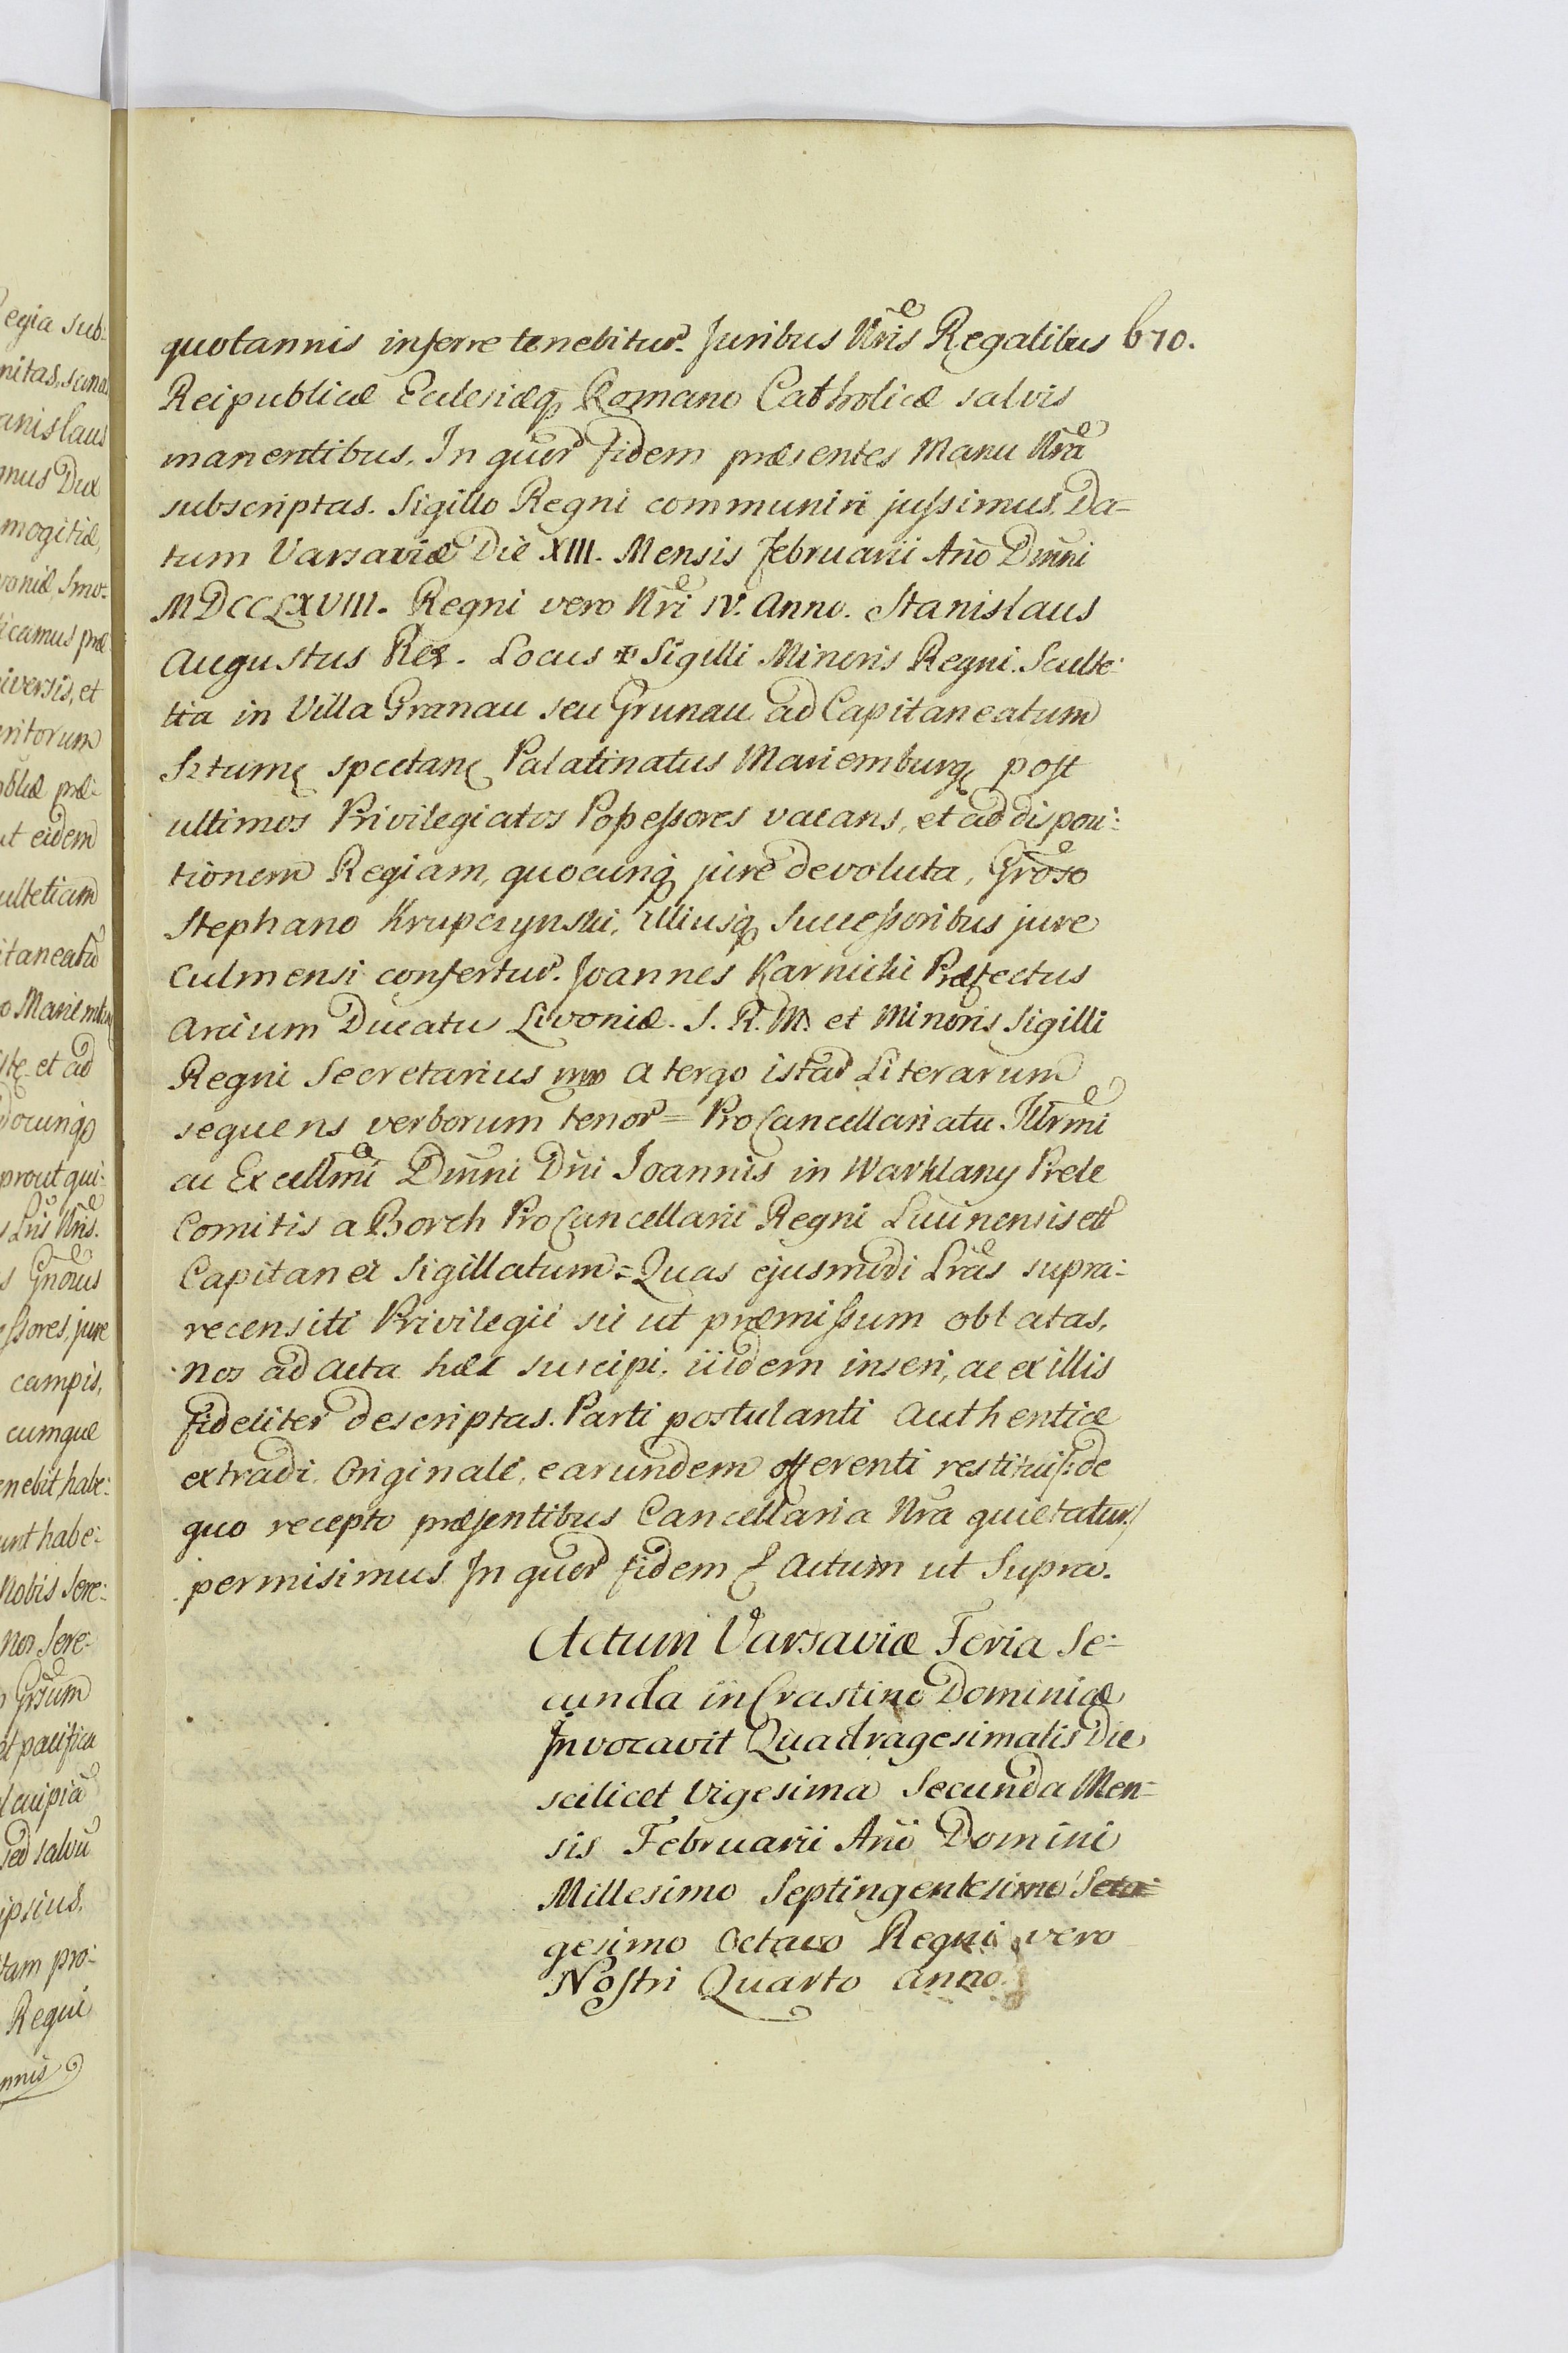 quotannis inferre tenebitur. Juribus Nris Regalibus 670.
Reipublicæ Eclesiæq Romano Catholicæ salvis
manentibus. In quor fidem præsentes Manu Nra
subscriptas. Sigillo Regni communiri jussimus. Da-
tum Varsaviæ Die XIII. Mensis Februarii Año Dnni
MDCCLXVIII. Regni vero Nri IV. Anno. Stanislaus
Augustus Rex. Locus ✠ Sigilli Minoris Regni. Sculte-
tia in Villa Granau seu Grunau ad Capitaneatum
spectanę Palatinatus Mariemburgę post
ultimos Privilegiatos Possessores vacans, et ad disposi-
tionem Regiam, quocunq jure devoluta, Groso
Stephano Krupczynski, Illiusq Successoribus jure
Culmensi confertur. Joannes Karnicki Præfectus
Arcium Ducatu Livoniæ. S. R. M. et Minoris Sigilli
Regni Secretarius mo A tergo istar Literarum
sequens verborum tenor = ProCancellariatu Illrmi
ac Excellmi Dnni Dni Joannis in Warklany Prele
Comitis a Borch ProCancellarii Regni Lucinensis ett
Capitanei Sigillatum = Quas ejusmodi Lras supra-
recensiti Privilegii sic ut præmissum oblatas,
nos ad Acta hæc suscipi, iisdem inseri, ac ex illis
fideliter descriptas. Parti postulanti Authentice
extradi. Originale, earundem offerenti restitui /: de
quo recepto præsentibus Cancellaria Nra quietatur :/
permisimus In quor fidem & Actum ut Supra.
Actum Varsaviæ Feria Se-
cunda in Crastino Dominicæ
Invocavit Quadragesimalis Die
scilicet Vigesima Secunda Men-
sis Februarii Año Domini
Millesimo Septingentesimo Sexa-
gesimo Octavo Regni vero
Nostri Quarto anno.